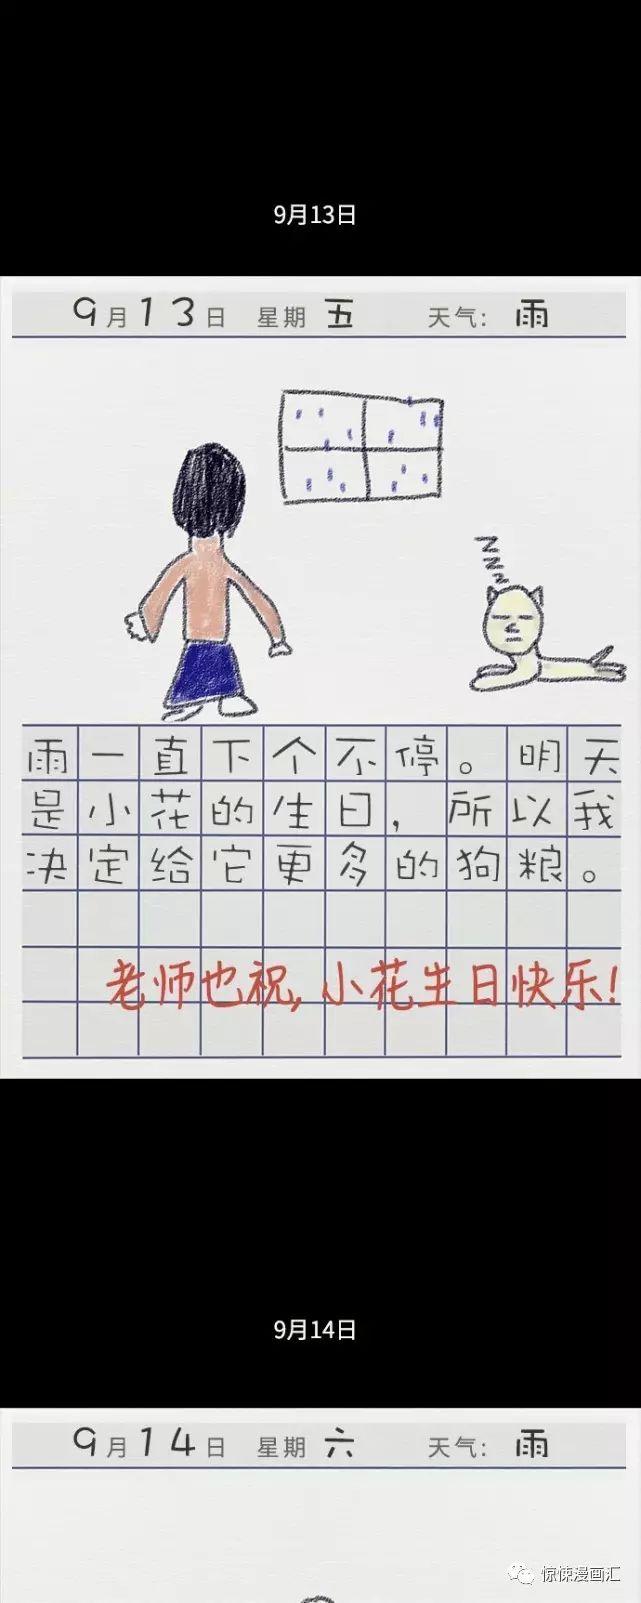 9月13日
9月13日 星期 五 天气: 雨
z
z
z
z
雨一直下个不停。明天
是小花的生日，所以我
决定给它更多的狗粮。
老师也祝,小花生日快乐!
9月14日
9月14日 星期 六 天气: 雨
惊悚漫画汇